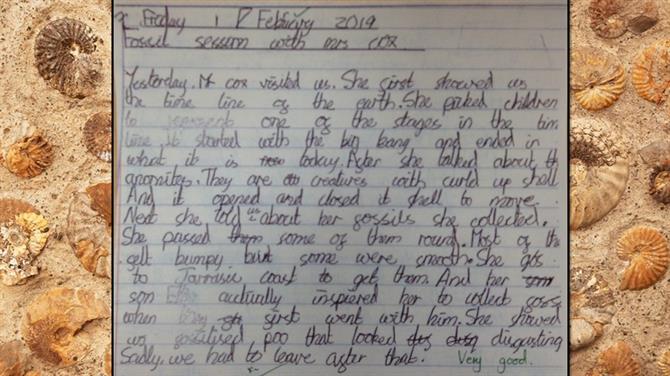 Friday 1 February 2019
Fossil session with mrs cox
Yesterday. M cox visited us. She first showed us
the time line of the earth. She picked children
to represent one of the stages in the tim
line. it started with the big bang and ended in
what it is now today. After she talked about th
amonites. They are creatures with curld up shell
And it opened and closed it shell to move.
Next she told us about her fossils she collected.
She passed them some of them round. Most of the
felt bumpy but some were smooth. She gos
to Jurrasic coast to get them. And her son
son acturally inspiered her to collect foss
when they first went with him. She showed
us fossalised poo that looked disgusting
Sadly. we had to leave after that. Very good.